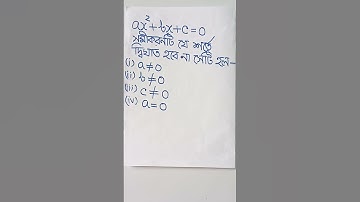 ax²+bx+c=0
সমীকরণটি যে শর্তে
দ্বিঘাত হবে না সেটি হল-
(i) a≠0
(ii) b≠0
(iii) c≠0
(iv) a=0